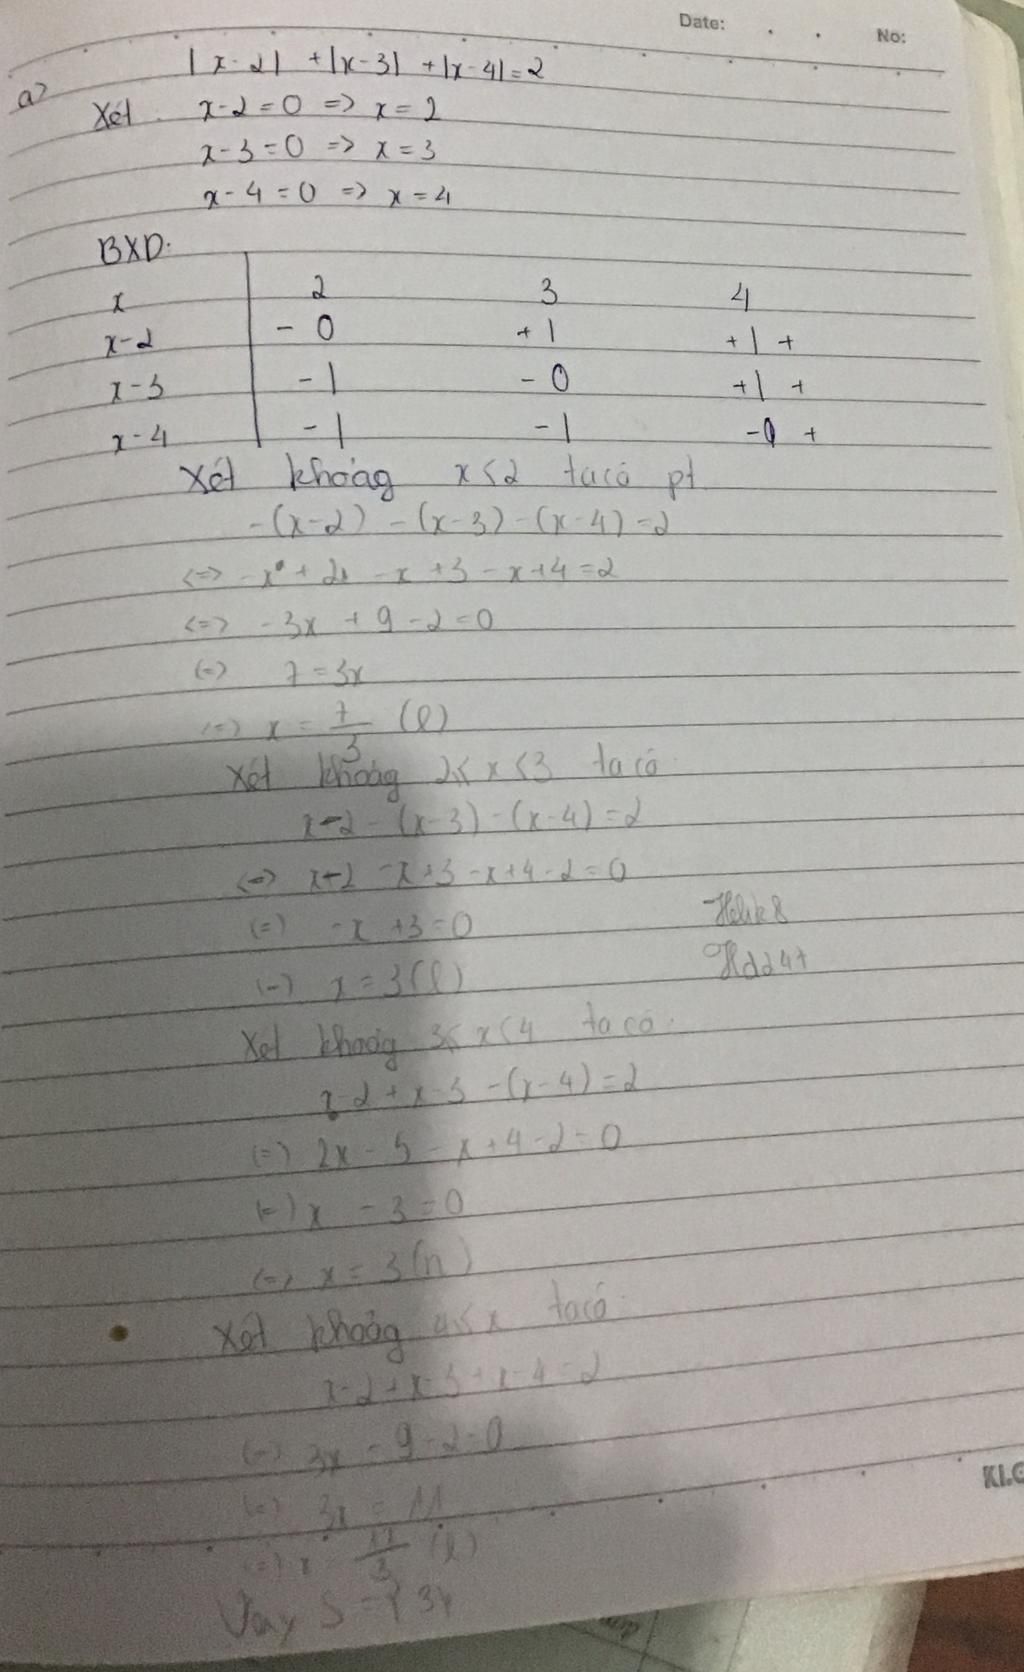 Date: . . No:
a) |x-2| +|x-3| +|x-4|=2
Xét x-2=0 => x=2
x-3=0 => x=3
x-4=0 => x=4
BXD:
x 2 3 4
x-2 - 0 + | + | +
x-3 - | - 0 + | +
x-4 - | - | - 0 +
Xét khoảng x<2 ta có pt
-(x-2) -(x-3) -(x-4) =2
<=> -x + 2 -x +3 -x +4 =2
<=> -3x + 9 -2 =0
<=> 7 =3x
<=> x = 7/3 (l)
Xét khoảng 2≤ x <3 ta có
x-2 -(x-3) -(x-4) =2
<=> x-2 -x+3 -x+4 -2 =0
<=> -x +3 =0
<=> x = 3 (l)
Xét khoảng 3≤ x <4 ta có
x-2 + x-3 -(x-4) =2
<=> 2x - 5 -x +4 -2 =0
<=> x - 3 =0
<=> x = 3 (n)
Xét khoảng 4≤ x ta có
x-2 +x-3 +x-4 =2
<=> 3x - 9 -2 =0
<=> 3x = 11
<=> x = 11/3 (l)
Vậy S = {3}